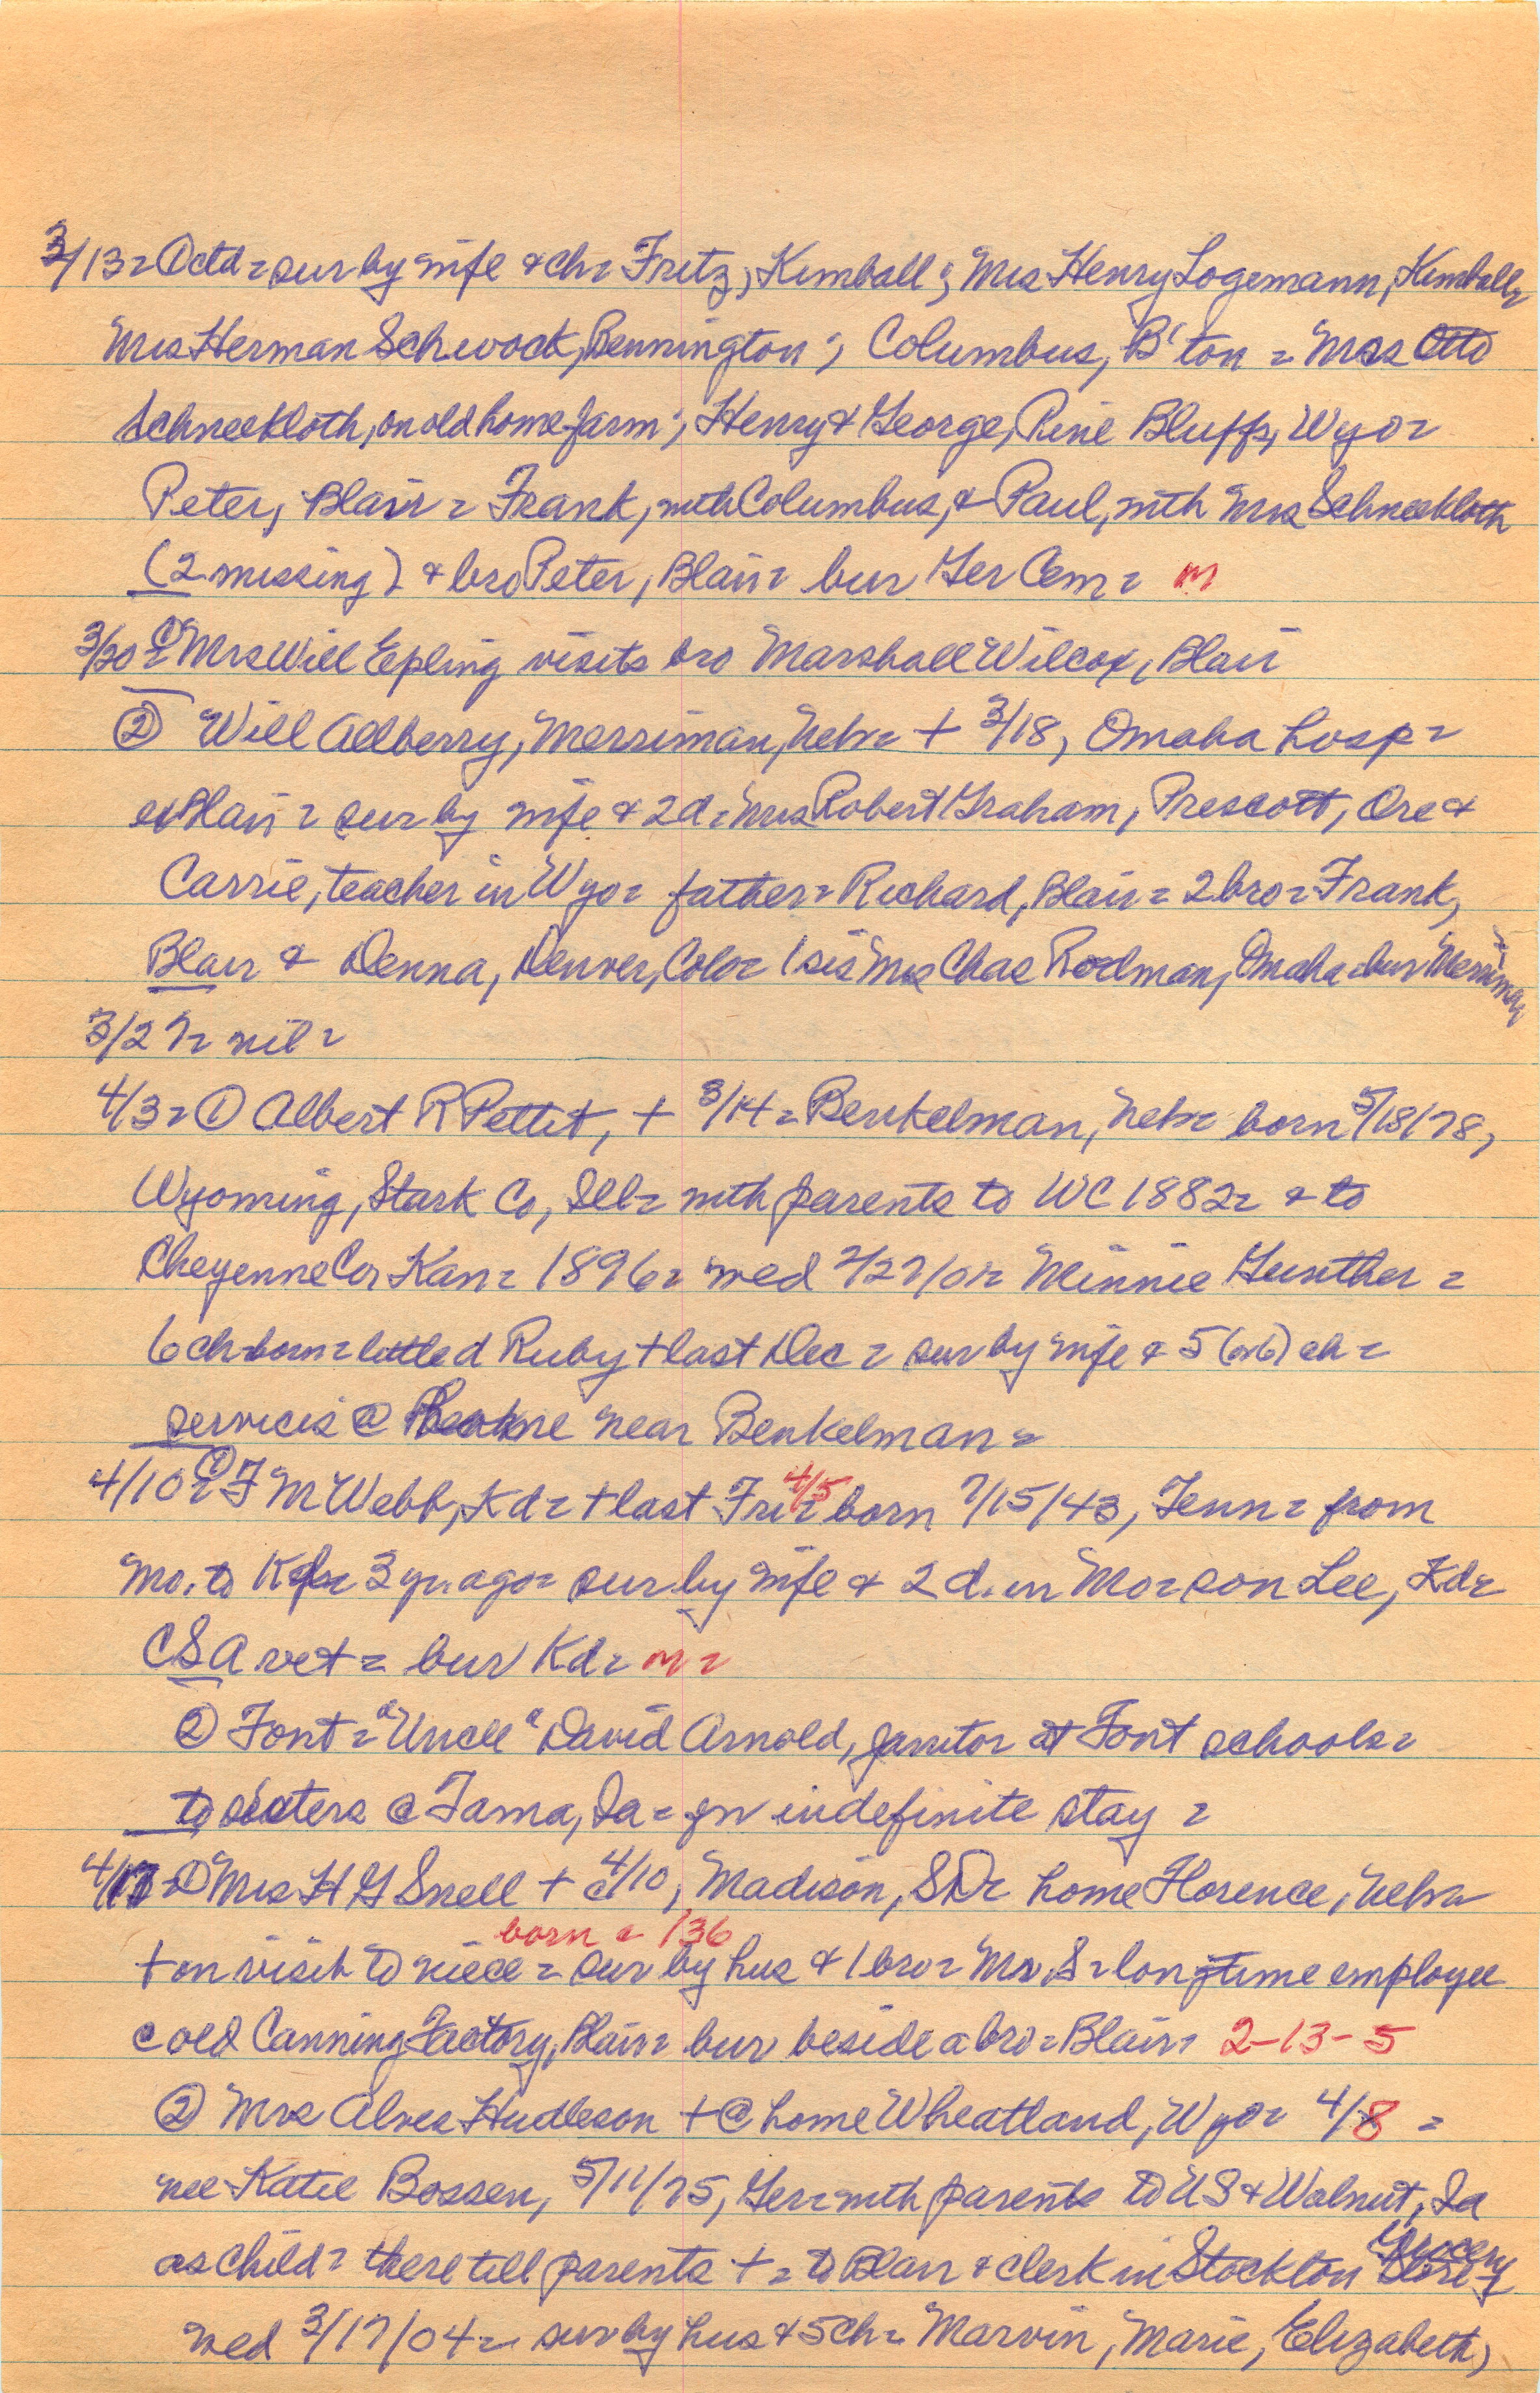 3/13 = ① ctd = sur by wife & ch = Fritz, Kimball; Mrs Henry Logemann, Kimball =
Mrs Herman Schwock, Bennington; Columbus, B'ton = Mrs Otto
Schneekloth, on old home farm; Henry & George, Pine Bluffs, Wyo =
Peter, Blair = Frank, with Columbus, & Paul, with Mrs Schneekloth
(2 missing) & bro Peter, Blair = bur Ger Cem = m
3/20 = ① Mrs Will Epling visits bro Marshall Wilcox, Blair
② Will Allberry, Merriman, Nebr = + 3/18, Omaha hosp =
ex Blair = sur by wife & 2 d = Mrs Robert Graham, Prescott, Ore &
Carrie, teacher in Wyo = father = Richard, Blair = 2 bro = Frank,
Blair & Denna, Denver, Colo = 1 sis Mrs Chas Rodman, Omaha = bur Merriman
3/27 = nil =
4/3 = ① Albert R Pettit, + 3/14 = Benkelman, Nebr = born 5/18/78,
Wyoming, Stark Co, Ill = with parents to WC 1882 = & to
Cheyenne Co, Kan = 1896 = wed 2/27/01 = Minnie Gunther =
6 ch born = little d Ruby + last Dec = sur by wife & 5 (or 6) ch =
services @ home near Benkelman =
4/10 = ① F M Webb, Kd = + last Fri 4/5 = born 7/15/43, Tenn = from
Mo. to Kd = 3 yr. ago = sur by wife & 2 d. in Mo = son Lee, Kd =
CSA vet = bur Kd = m =
② Font = "Uncle" David Arnold, janitor at Font schools =
to sisters @ Tama, Ia = for indefinite stay =
4/17 = ① Mrs H G Snell + c 4/10, Madison, SD = home Florence, Nebr =
born c 136
+ on visit to niece = sur by hus & 1 bro = Mr. S = longtime employee
@ old Canning Factory, Blair = bur beside a bro = Blair = 2-13-5
② Mrs Alves Hudleson + @ home Wheatland, Wyo = 4/8 =
nee Katie Bossen, 5/11/75, Ger = with parents to US & Walnut, Ia
as child = there till parents + = to Blair & clerk in Stockton Grocery =
wed 3/17/04 = sur by hus & 5 ch = Marvin, Marie, Elizabeth,